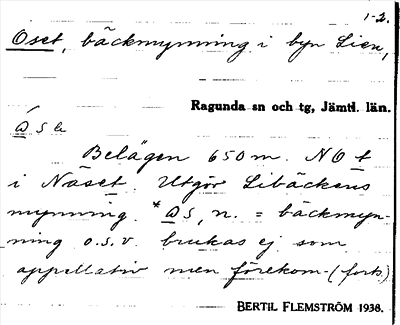 1-2.
Oset, bäckmynning i byn Lien,
Ragunda sn och tg, Jämtl. län.
ɷ́ s e
Belägen 650 m. NO t
i Näset. Utgör Libäckens
mynning. *ɷs, n. = bäckmyn-
ning o.s.v. brukas ej som
appellativ men förekom-(forts.)
BERTIL FLEMSTRÖM 1938.